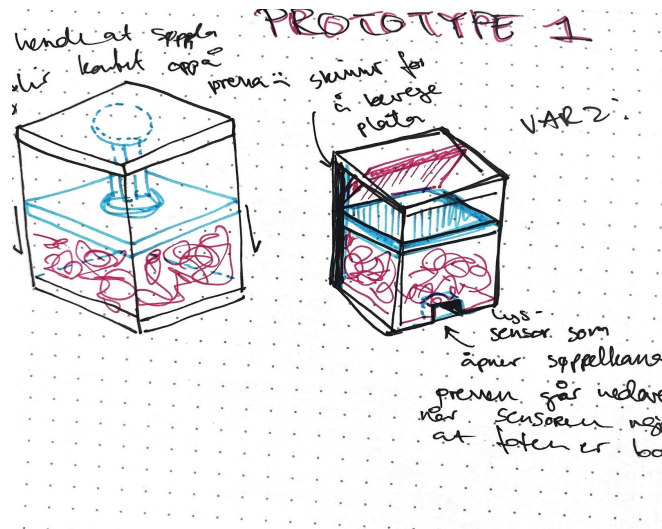 PROTOTYPE 1
hende at søppla
blir kastet oppå
pressa
skinner for
å bevege
plata
VAR 2:
lys-
sensor som
åpner søppelkana
pressen går nedove
når sensoren
at foten er bo